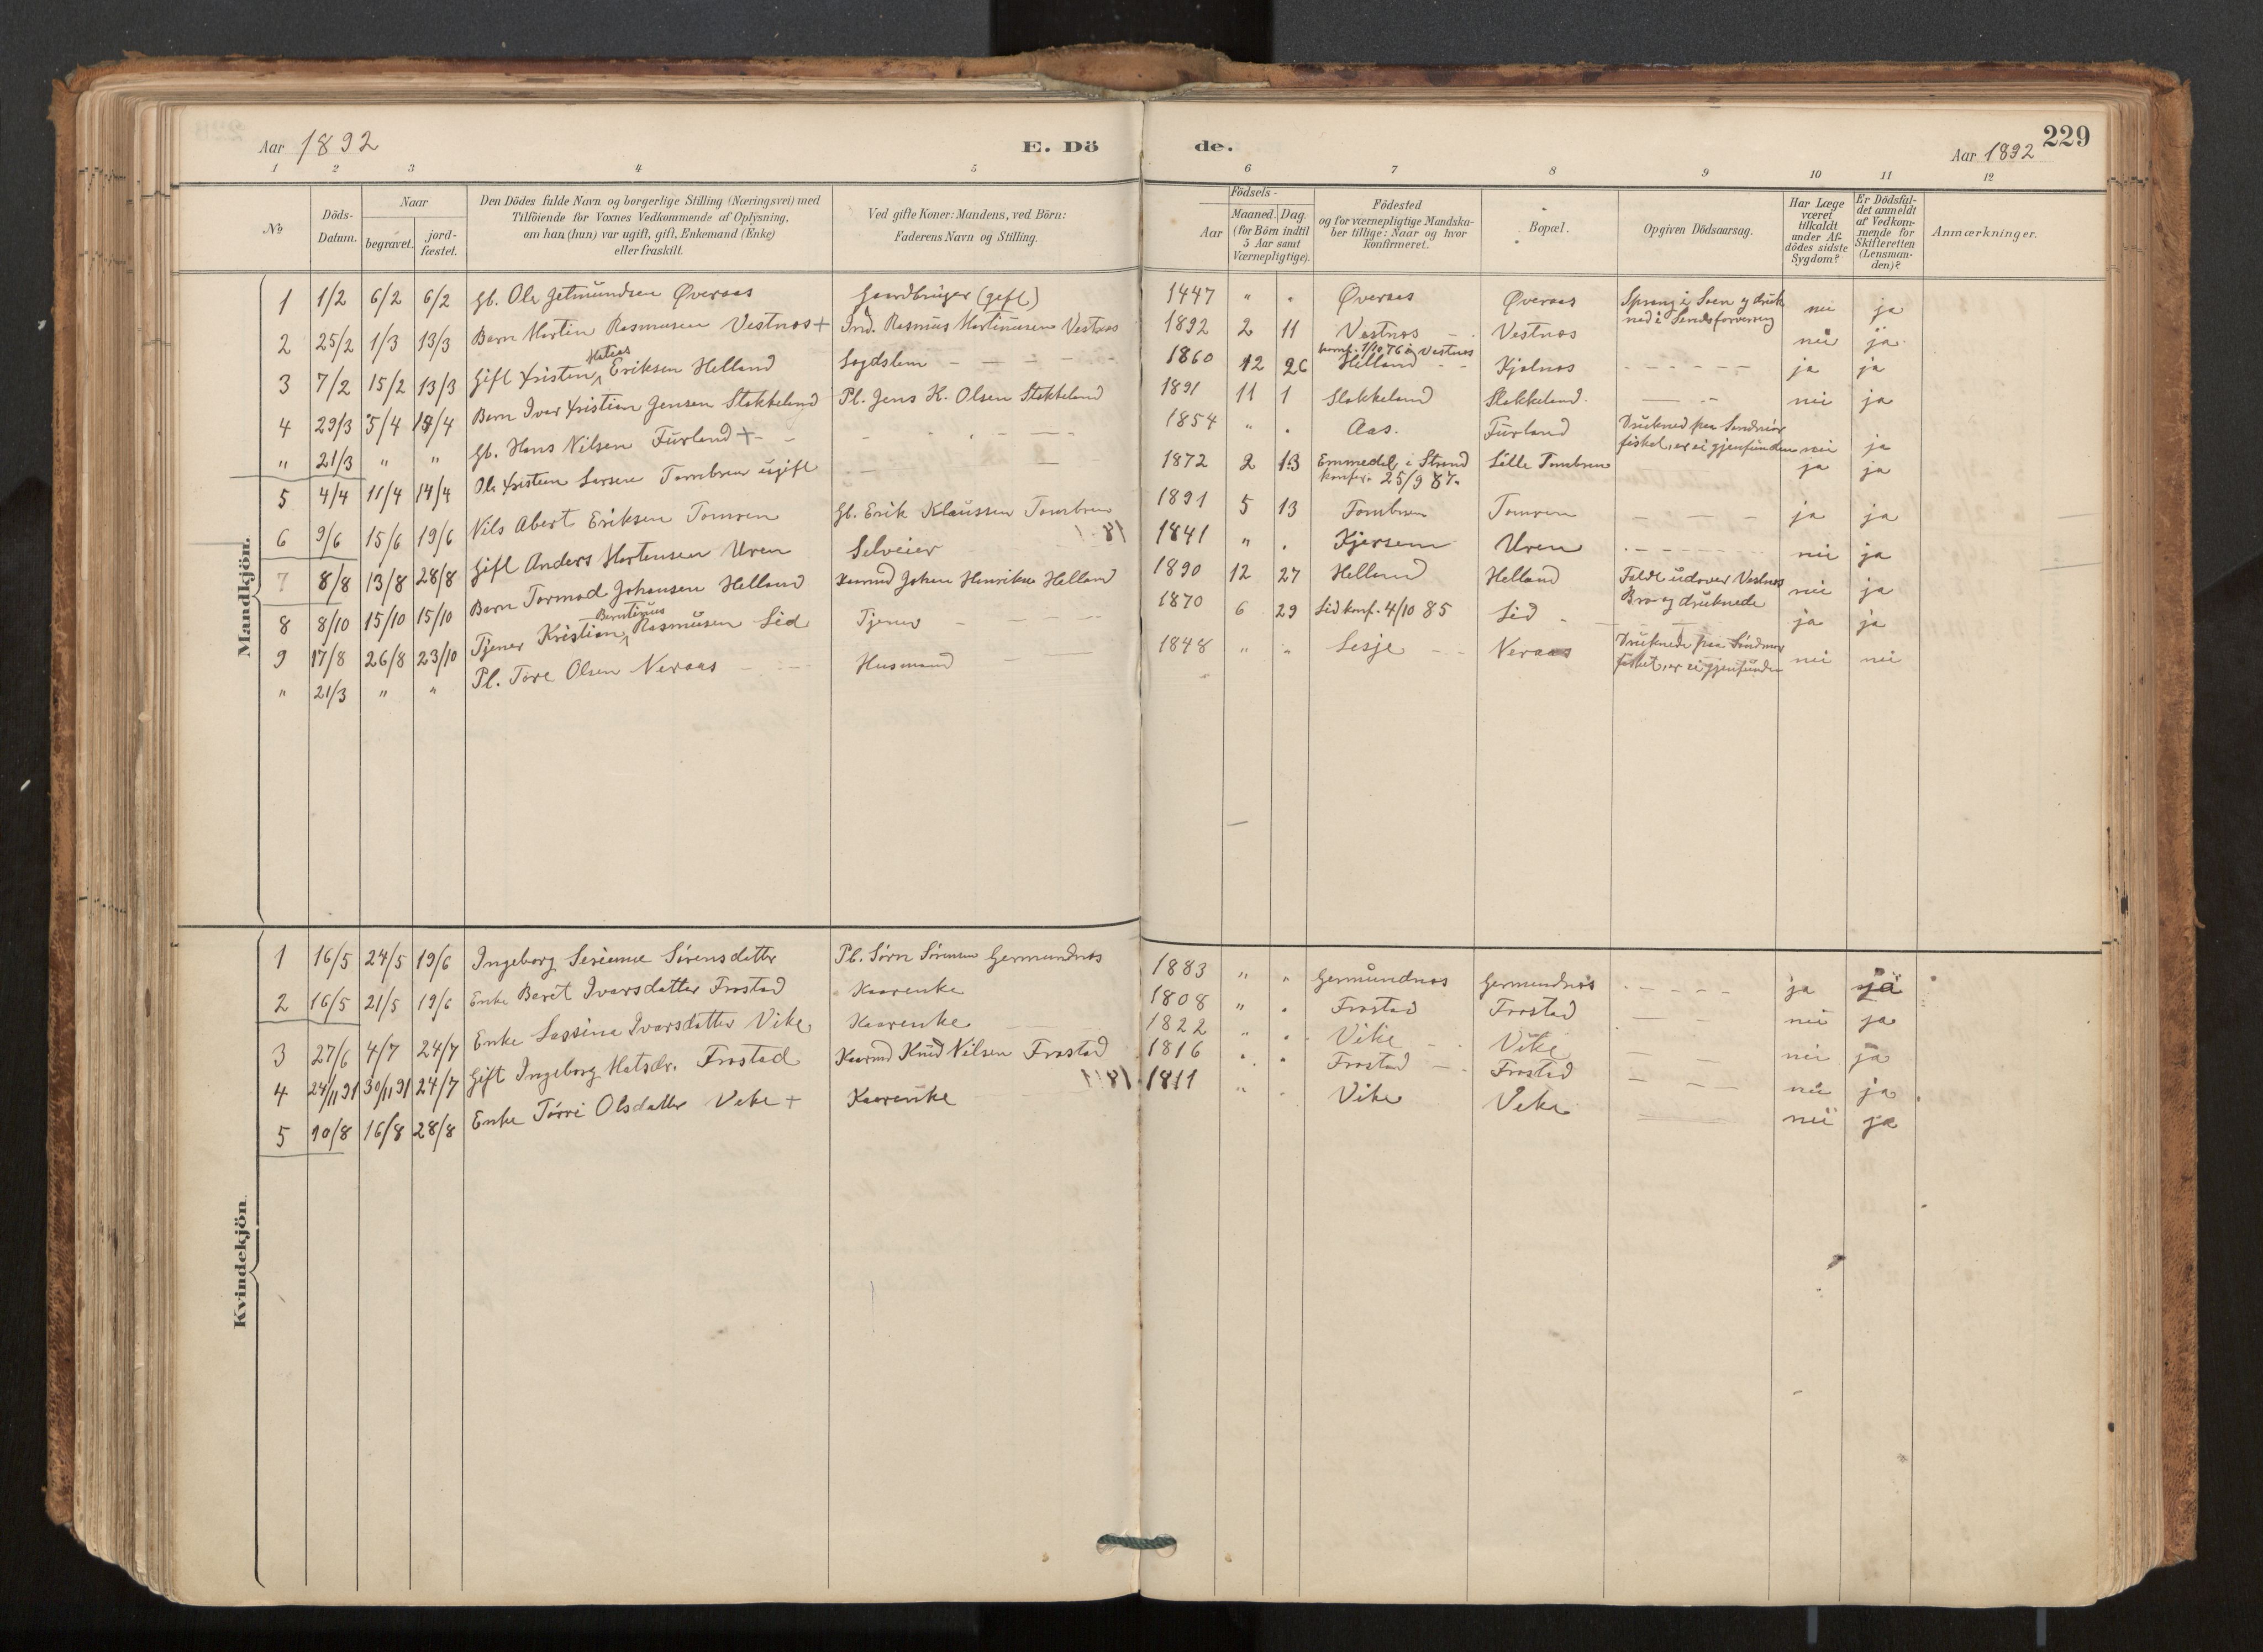 Aar 1892 E. Dö de. Aar 1892 229
1 2 3 4 5 6 7 8 9 10 11 12
№
Döds-
Datum.
Naar
begravet.
jord-
fæstet.
Den Dödes fulde Navn og borgerlige Stilling (Næringsvei) med
Tilföiende for Voxnes Vedkommende af Oplysning,
om han (hun) var ugift, gift, Enkemand (Enke)
eller fraskilt.
Ved gifte Koner: Mandens, ved Börn:
Faderens Navn og Stilling.
Födsels-
Aar
Maaned. Dag.
(for Börn indtil
5 Aar samt
Værnepligtige).
Födested
og for værnepligtige Mandska-
ber tillige: Naar og hvor
Konfirmeret.
Bopæl.
Opgiven Dödsaarsag.
Har Læge
været
tilkaldt
under Af-
dödes sidste
Sygdom?
Er Dödsfal-
det anmeldt
af Vedkom-
mende for
Skifteretten
(Lensman-
den)?
Anmærkninger.
Mandkjön.
1 1/2 6/2 6/2 Gb. Ole Jetmundsen Øveraas Gaardbruger (gift) 1447 " " Øveraas Øveraas Sprang i Søen og druk nei ja
nede i Sindsforvirring
2 25/2 1/3 13/3 Barn Martin Rasmusen Vestnæs + Ind. Rasmus Martinusen Vestnæs 1892 2 11 Vestnæs Vestnæs nei ja
Matias
konf. 1/10 76 i Vestnæs
3 7/2 15/2 13/3 Gift Kristen Eriksen Helland 1860 12 26 Helland Kjelnæs ja ja
4 29/3 5/4 18/4 Barn Ivar Kristian Jensen Stokkeland Pl. Jens K. Olsen Stokkeland 1891 11 1 Stokkeland Stokkeland. nei ja
" 21/3 " " Gb. Hans Nilsen Furland + 1854 " " Aas. Furland Drukned paa Søndmør
fisket, er ei gjenfunden nei ja
5 4/4 11/4 14/4 Ole Kristian Larsen Tombren ugift 1872 2 13 Emmedel i Strand Lille Tombren ja ja
konfir. 25/9 87.
6 9/6 15/6 19/6 Nils Abert Eriksen Tomren Gb. Erik Klaussen Tombren 1891 5 13 Tombren Tomren ja ja
7 8/8 13/8 28/8 Gift Anders Mortensen Uren Selveier 1841 " " Kjersem Uren nei ja
8 8/10 15/10 15/10 Barn Tormod Johansen Helland Kaarmd Johan Henriksen Helland 1890 12 27 Helland Helland Faldt udover Vestnes nei ja
Bro og druknede
Berntinus
9 17/8 26/8 23/10 Tjener Kristian Rasmusen Lid Tjener 1870 6 29 Lid konf. 4/10 85 Lid ja ja
" 21/3 " " Pl. Tore Olsen Neraas Husmand 1848 " " Lesje Neraas Druknede paa Söndmør
fisket, er ei gjenfunden nei nei
Kvindekjön.
1 16/5 24/5 19/6 Ingeborg Serianne Sörensdatter Pl. Sörn Sörensen Germundnes 1883 " " Germundnes Germundnes ja ja
2 16/5 21/5 19/6 Enke Beret Ivarsdatter Frostad Kaarenke 1808 " " Frostad Frostad nei ja
3 27/6 4/7 24/7 Enke Lassina Ivarsdatter Vike Kaarenke 1822 " " Vike Vike nei ja
4 24/11 91 30/11 91 24/7 Gift Ingeborg Matsdr. Frostad Kaarmd Knud Nilsen Frostad 1816 " " Frostad Frostad nei ja
5 10/8 16/8 28/8 Enke Törri Olsdatter Vike + Kaarenke 1811 " " Vike Vike nei ja